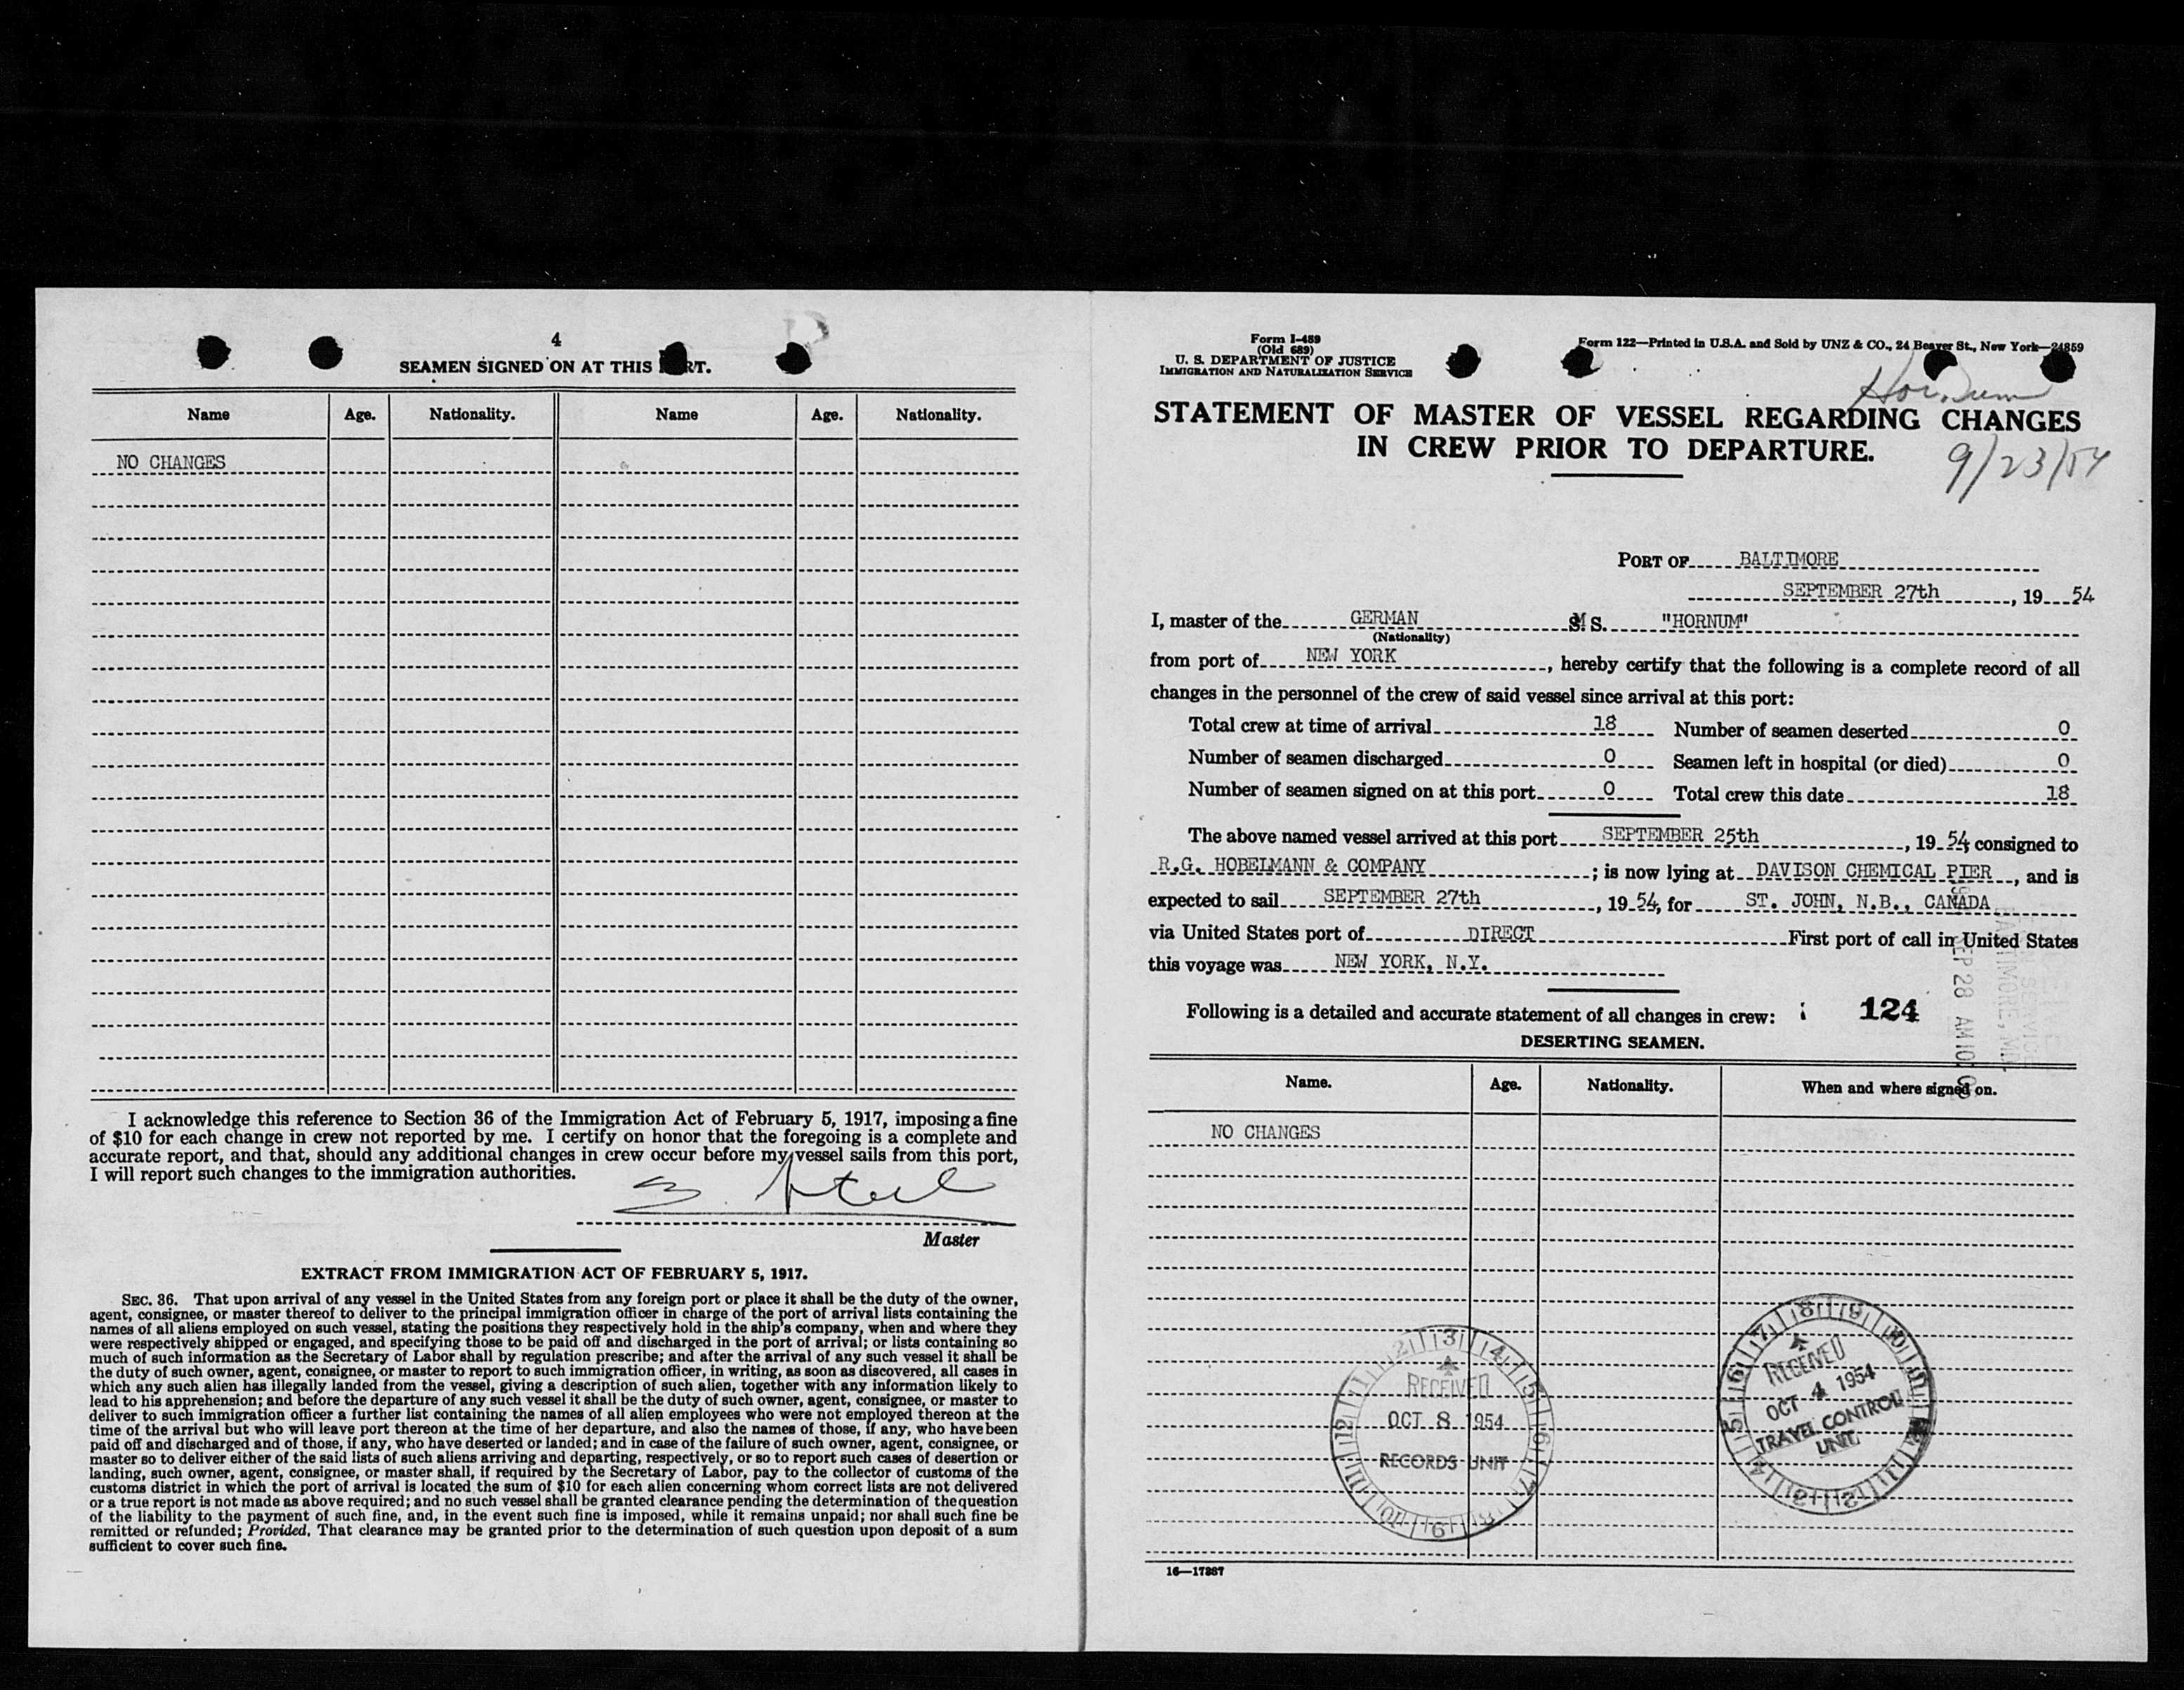 4
SEAMEN SIGNED ON AT THIS PORT.
Name Age. Nationality. Name Age. Nationality.
NO CHANGES
I acknowledge this reference to Section 36 of the Immigration Act of February 5, 1917, imposing a fine
of $10 for each change in crew not reported by me. I certify on honor that the foregoing is a complete and
accurate report, and that, should any additional changes in crew occur before my vessel sails from this port,
I will report such changes to the immigration authorities.
Master
EXTRACT FROM IMMIGRATION ACT OF FEBRUARY 5, 1917.
SEC. 36. That upon arrival of any vessel in the United States from any foreign port or place it shall be the duty of the owner,
agent, consignee, or master thereof to deliver to the principal immigration officer in charge of the port of arrival lists containing the
names of all aliens employed on such vessel, stating the positions they respectively hold in the ship's company, when and where they
were respectively shipped or engaged, and specifying those to be paid off and discharged in the port of arrival; or lists containing so
much of such information as the Secretary of Labor shall by regulation prescribe; and after the arrival of any such vessel it shall be
the duty of such owner, agent, consignee, or master to report to such immigration officer, in writing, as soon as discovered, all cases in
which any such alien has illegally landed from the vessel, giving a description of such alien, together with any information likely to
lead to his apprehension; and before the departure of any such vessel it shall be the duty of such owner, agent, consignee, or master to
deliver to such immigration officer a further list containing the names of all alien employees who were not employed thereon at the
time of the arrival but who will leave port thereon at the time of her departure, and also the names of those, if any, who have been
paid off and discharged and of those, if any, who have deserted or landed; and in case of the failure of such owner, agent, consignee, or
master so to deliver either of the said lists of such aliens arriving and departing, respectively, or so to report such cases of desertion or
landing, such owner, agent, consignee, or master shall, if required by the Secretary of Labor, pay to the collector of customs of the
customs district in which the port of arrival is located the sum of $10 for each alien concerning whom correct lists are not delivered
or a true report is not made as above required; and no such vessel shall be granted clearance pending the determination of the question
of the liability to the payment of such fine, and, in the event such fine is imposed, while it remains unpaid; nor shall such fine be
remitted or refunded; Provided, That clearance may be granted prior to the determination of such question upon deposit of a sum
sufficient to cover such fine.
Form I-489
(Old 689)
U. S. DEPARTMENT OF JUSTICE
IMMIGRATION AND NATURALIZATION SERVICE
Form 122—Printed in U.S.A. and Sold by UNZ & CO., 24 Beaver St., New York—24859
Hornum
STATEMENT OF MASTER OF VESSEL REGARDING CHANGES
IN CREW PRIOR TO DEPARTURE.
9/23/54
PORT OF BALTIMORE
SEPTEMBER 27th, 19 54
I, master of the GERMAN M S. "HORNUM"
(Nationality)
from port of NEW YORK, hereby certify that the following is a complete record of all
changes in the personnel of the crew of said vessel since arrival at this port:
Total crew at time of arrival 18 Number of seamen deserted 0
Number of seamen discharged 0 Seamen left in hospital (or died) 0
Number of seamen signed on at this port 0 Total crew this date 18
The above named vessel arrived at this port SEPTEMBER 25th, 19 54 consigned to
R.G. HOBELMANN & COMPANY; is now lying at DAVISON CHEMICAL PIER, and is
expected to sail SEPTEMBER 27th, 19 54, for ST. JOHN, N.B., CANADA
via United States port of DIRECT First port of call in United States
this voyage was NEW YORK, N.Y.
Following is a detailed and accurate statement of all changes in crew: 124
SEP 28 AM 10
BALTIMORE, MD.
DESERTING SEAMEN.
Name. Age. Nationality. When and where signed on.
NO CHANGES
RECEIVED
OCT 8 1954
RECORDS UNIT
RECEIVED
OCT 4 1954
TRAVEL CONTROL
UNIT
16—17887